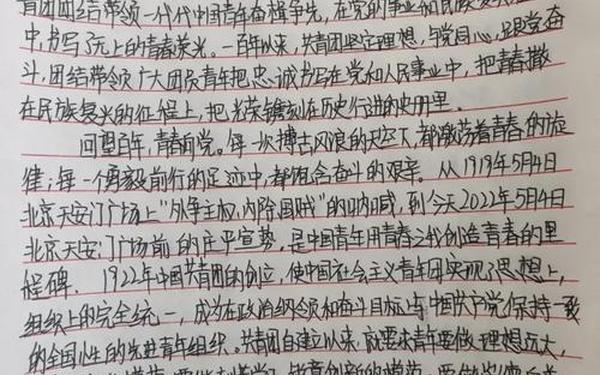 青团团结带领一代代中国青年奋楫争先，在党的事业和民族复兴
中，书写了无上的青春荣光。一百年以来，共青团坚定理想，与党同心，跟党奋
斗，团结带领广大团员青年把忠诚书写在党和人民事业中，把青春撒
在民族复兴的征程上，把光荣镌刻在历史行进的史册里。
回望百年，青春向党。每一次搏击风浪的天空下，都激荡着青春的旋
律；每一个勇毅前行的足迹中，都饱含奋斗的艰辛。从1919年5月4日
北京天安门广场上“外争主权，内除国贼”的呐喊，到今天2022年5月4日
北京天安门广场前的庄严宣誓，是中国青年用青春之代创造青春的里
程碑。1922年中国共青团的创立，使中国社会主义青年团实现了思想上，
组织上的完全统一，成为在政治纲领和奋斗目标上与中国共产党保持一致
的全国性的先进青年组织。共青团自建立以来，就要求青年要做理想远大，